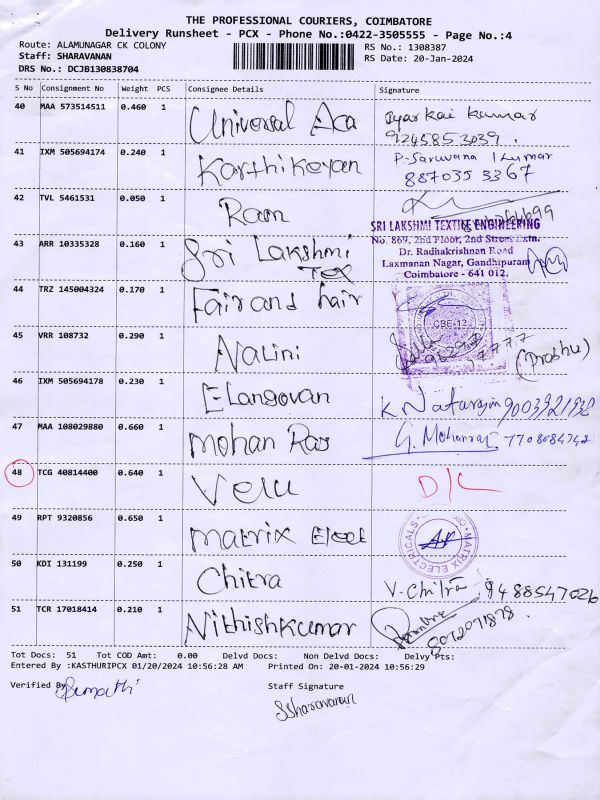 THE PROFESSIONAL COURIERS, COIMBATORE
Delivery Runsheet - PCX - Phone No.:0422-3505555 - Page No.:4
Route: ALAMUNAGAR CK COLONY
RS No.: 1308387
Staff: SHARAVANAN
RS Date: 20-Jan-2024
DRS No.: DCJB130838704
S No Consignment No Weight PCS Consignee Details Signature
40 MAA 573514511 0.460 1 Universal Aca kumar
9245853039.
41 IXM 505694174 0.240 1 Karthikeyan P. Saravana Kumar
887035 3367
42 TVL 5461531 0.050 1 Ram
SRI LAKSHMI TEXTILE ENGINEERING
No. 869, 2nd Floor, 2nd Street Extn.
43 ARR 10335328 0.160 1 Sri Lakshmi Tex
Dr. Radhakrishnan Road
Laxmanan Nagar, Gandhipuram
Coimbatore - 641 012.
44 TRZ 145004324 0.170 1 Fair and hair
CBE-12
45 VRR 108732 0.290 1 Nalini
(Prabhu)
46 IXM 505694178 0.230 1 Elangovan K Natarajan 9003921938
47 MAA 108029880 0.660 1 Mohan Rao G. Mohanraj 7708084742
48 TCG 40814400 0.640 1 Velu D/L
49 RPT 9320856 0.650 1 Matrix Elect
MATRIX ELECTRICALS
50 KDI 131199 0.250 1 Chitra V. Chitra 9488547026
51 TCR 17018414 0.210 1 Nithishkumar
8072071878
Tot Docs: 51 Tot COD Amt: 0.00 Delvd Docs: Non Delvd Docs: Delvy Pts:
Entered By :KASTHURIPCX 01/20/2024 10:56:28 AM Printed On: 20-01-2024 10:56:29
Verified By
Staff Signature
SSharavanan